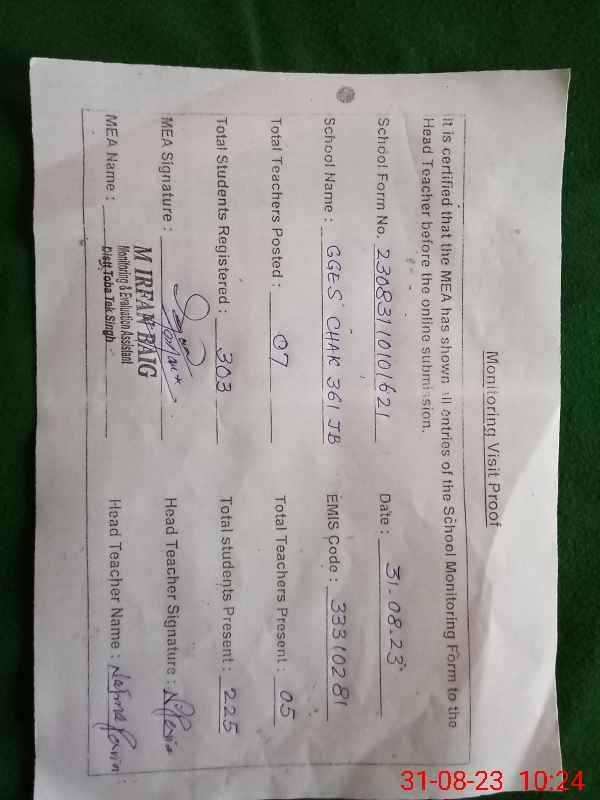 Monitoring Visit Proof
It is certified that the MEA has shown all entries of the School Monitoring Form to the
Head Teacher before the online submission.
School Form No. 23083110101621 Date : 31.08.23
School Name : GGES CHAK 361 JB EMIS Code : 33310281
Total Teachers Posted : 07 Total Teachers Present : 05
Total Students Registered : 303 Total students Present : 225
MEA Signature : Head Teacher Signature :
M IRFAN BAIG
Monitoring & Evaluation Assistant
Distt Toba Tek Singh
MEA Name : Head Teacher Name :
31-08-23 10:24